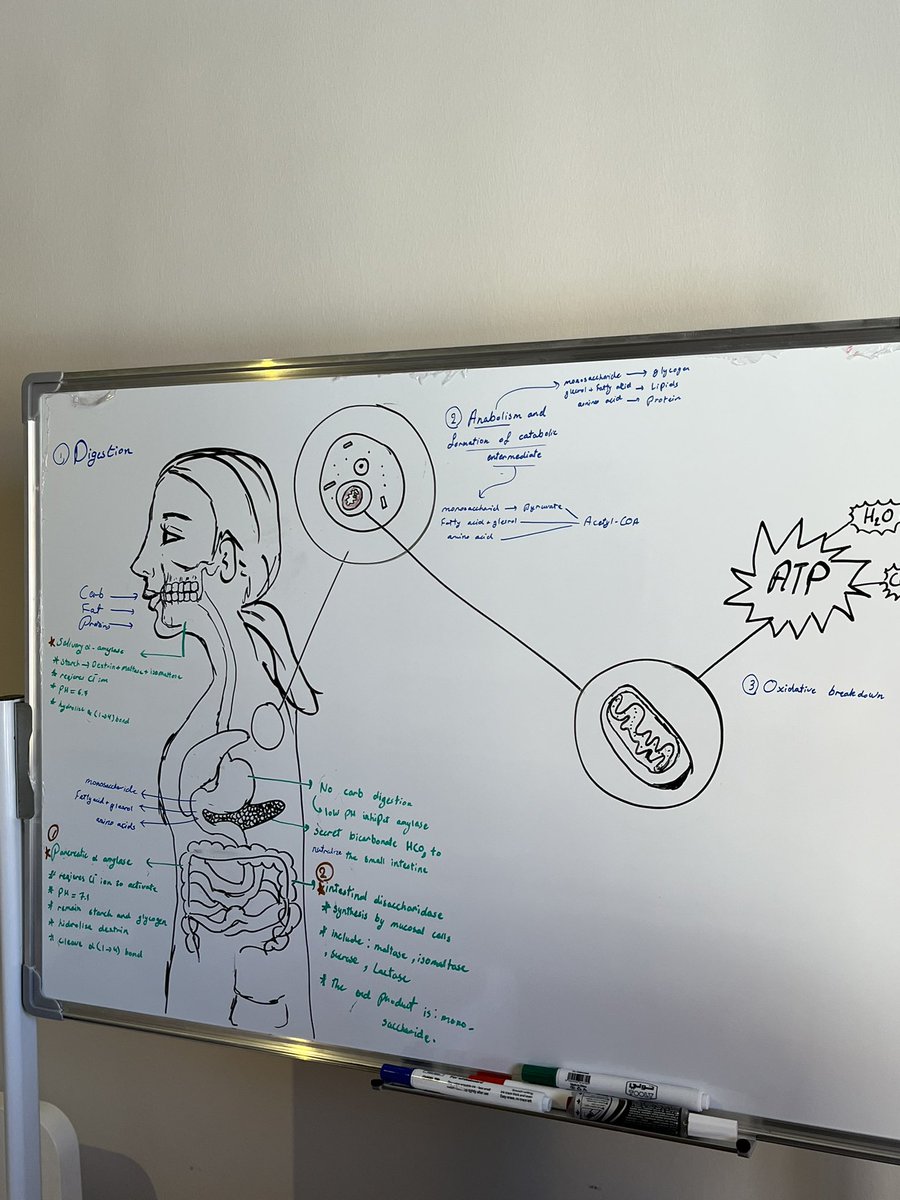 ① Digestion
Carb
Fat
Protein
* Salivary α-amylase
* starch → Dextrin + maltose + isomaltose
* reqieres Cl⁻ ion
* PH = 6.7
* hydrolise α (1→4) bond
monosaccharide
Fatty acid + glesrol
amino acids
①
* Pancreatic α amylase
* reqieres Cl⁻ ion so activate
* PH = 7.1
* remain starch and glycogen
* hidrolise dextrin
* cleave α (1→4) bond
No carb digestion
low PH inhipit amylase
secret bicarbonate HCO₃ to
neutralize the small intestine
②
* intestinal disaccharidase
* synthesis by mucosal cells
* include : maltase , isomaltase
, sucrase , Lactase
* The end product is : mono-
saccharide.
② Anabolism and
formation of catabolic
entermediate
monosaccharide → glycogen
glesrol + Fatty acid → Lipids
amino acid → Protein
monosaccharid → Pyruvate
Fatty acid + glesrol
amino acid
Acetyl-COA
ATP
H₂O
C
③ Oxidative breakdown
TOONY